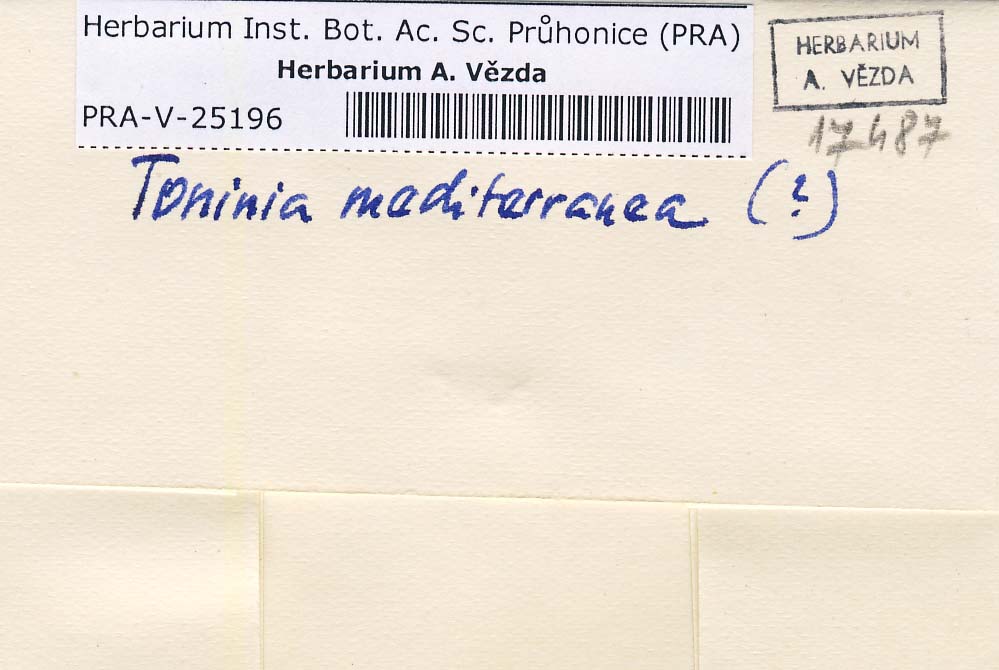 Herbarium Inst. Bot. Ac. Sc. Průhonice (PRA)
Herbarium A. Vězda
PRA-V-25196
HERBARIUM
A. VĚZDA
17487
Toninia mediterranea (?)